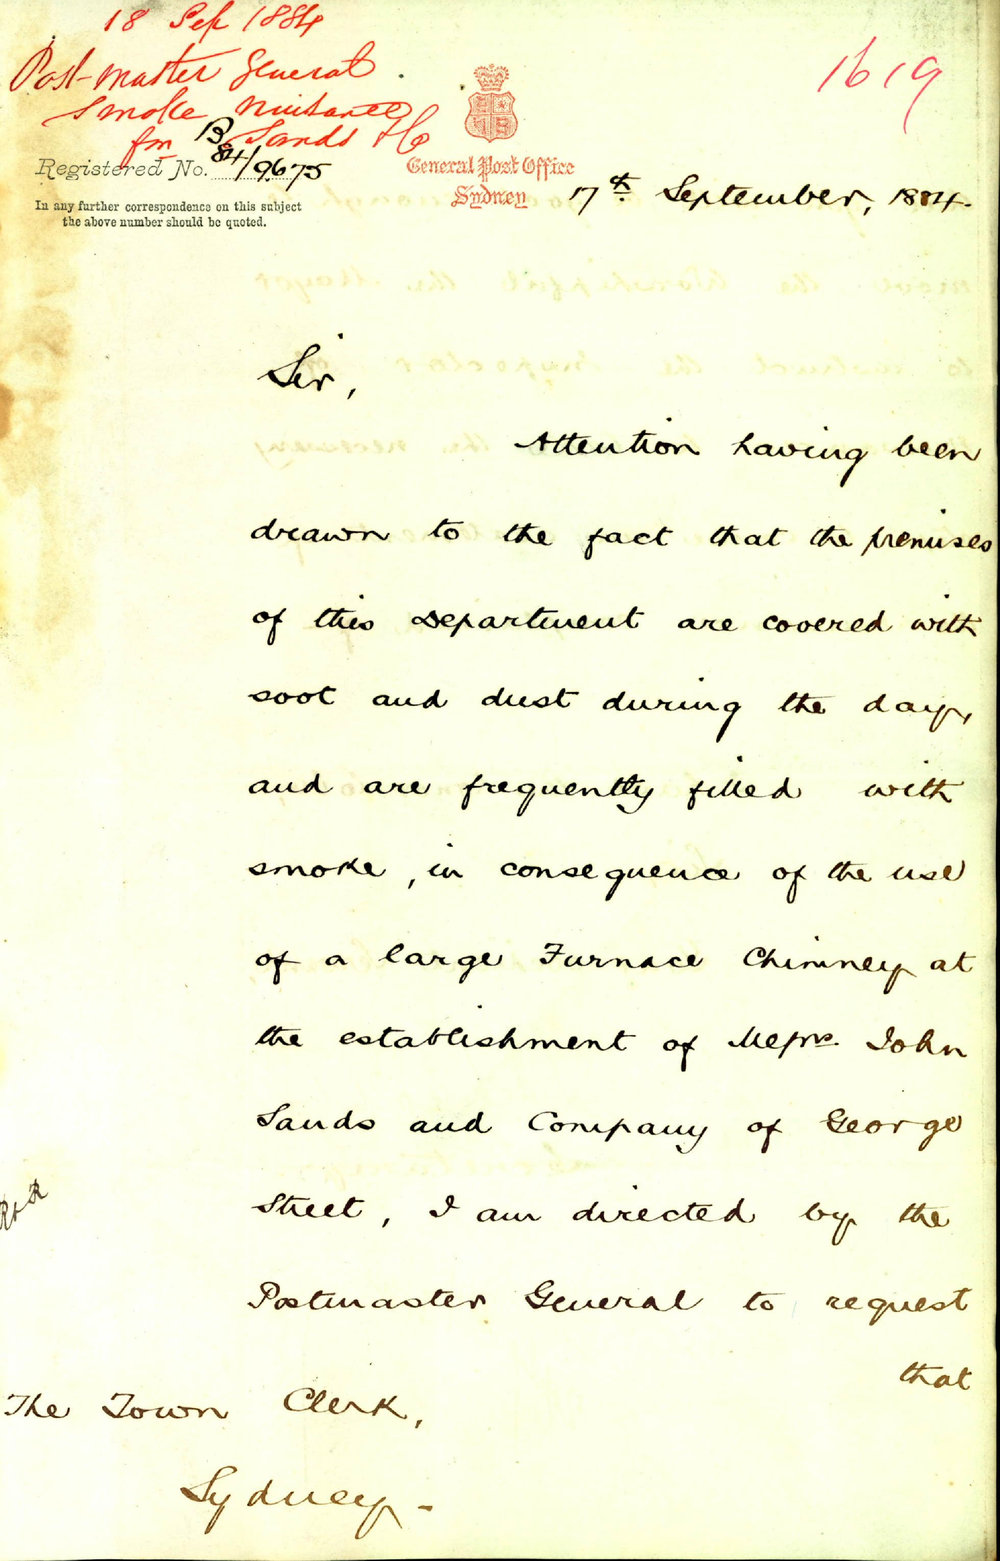 18 Sep 1884
Post-master General
Smoke Nuisance
fm Sands & Co
1619
General Post Office
Sydney
B
Registered No. 84/9675
In any further correspondence on this subject
the above number should be quoted.
17th September, 1884.
Sir,
Attention having been
drawn to the fact that the premises
of this Department are covered with
soot and dust during the day,
and are frequently filled with
smoke, in consequence of the use
of a large Furnace Chimney at
the establishment of Messrs. John
Sands and Company of George
Street, I am directed by the
Postmaster General to request
that
The Town Clerk,
Sydney.